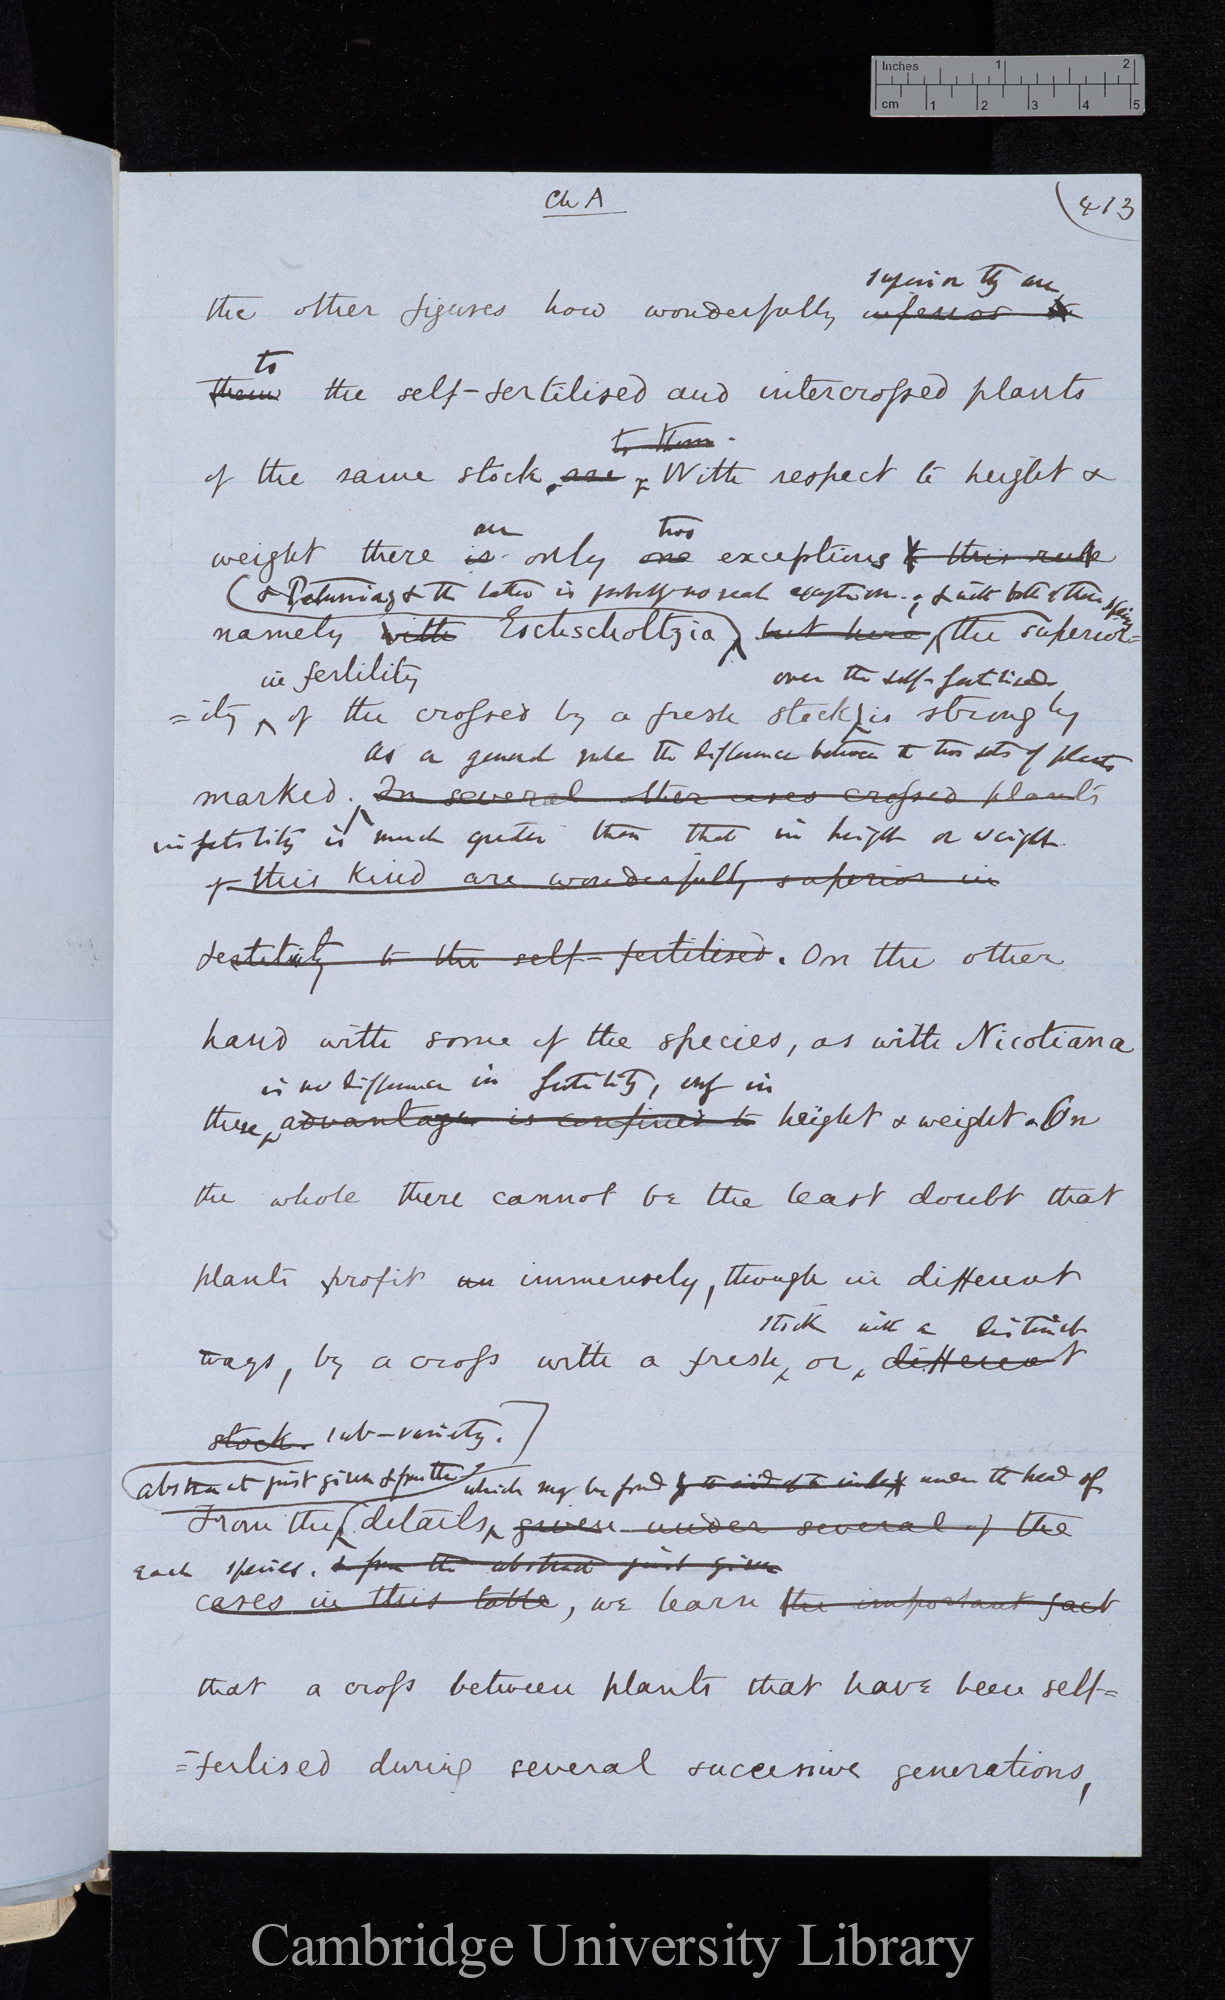 Inches 1 2
cm 1 2 3 4 5
Ch A
413
superior they are
the other figures how wonderfully inferior to
to
them the self-fertilised and intercrossed plants
to them.
of the same stock, are With respect to height &
are two
weight there is only one exceptions to this rule
& Petunia; & the latter is probably no real exception.; & with both these species
namely with Eschscholtzia, but here, the superior=
in fertility over the self-fertilised
=ity of the crossed by a fresh stock, is strongly
As a general rule the difference between the two sets of plants
marked. In several other cases crossed plants
in fertility is much greater than that in height or weight.
of this kind are wonderfully superior in
fertility to the self-fertilised. On the other
hand with some of the species, as with Nicotiana
is no difference in fertility, only in
there, advantage is confined to height & weight. On
the whole there cannot be the least doubt that
plants profit an immensely, though in different
stock with a distinct
ways, by a cross with a fresh, or, different
stock. sub-variety.
abstract just given & further which may be found by the aid of the index under the head of
From the details, given under several of the
each species. & from the abstract just given
cases in this table, we learn the important fact
that a cross between plants that have been self=
=ferlised during several successive generations,
Cambridge University Library